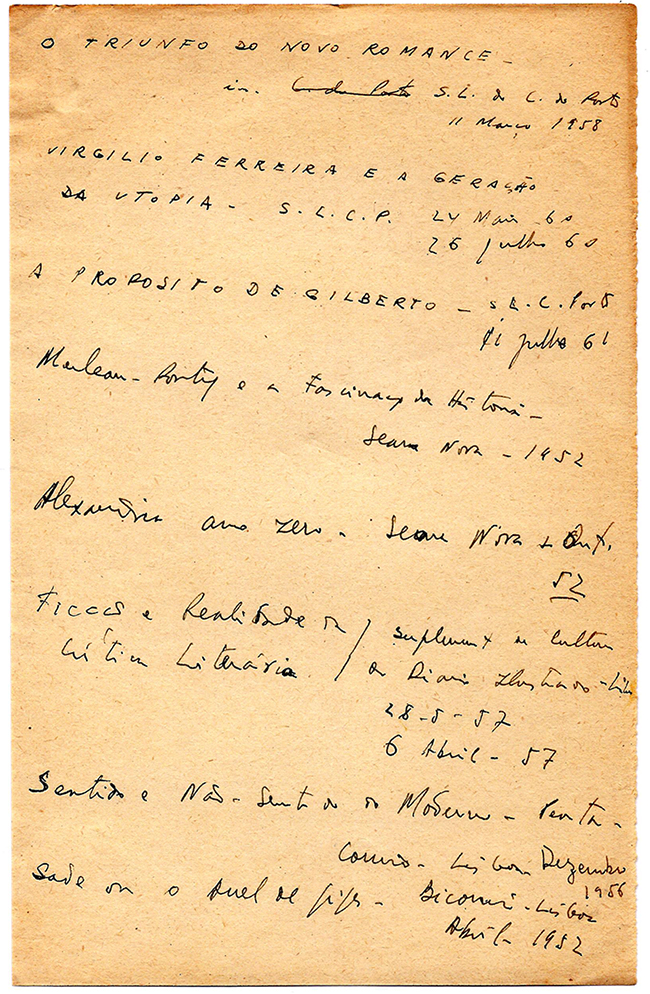 O TRIUNFO DO NOVO ROMANCE -
in. S. L. do C. do Porto
11 Março 1958
VIRGILIO FERREIRA E A GERAÇÃO
DA UTOPIA - S. L. C. P. 24 Maio 60
26 Julho 60
A PROPOSITO DE GILBERTO - S. L. C. Porto
11 Julho 61
Merleau-Ponty e a Fascinação da História -
Seara Nova - 1952
Alexandria ano zero - Seara Nova - Out.
52
Ficção e Realidade da / Suplemento de Cultura
Crítica Literária / do Diario Ilustrado -
28-5-57
6 Abril - 57
Sentido e Não-Sentido do Moderno -
Lisboa Dezembro
1956
Sade ou o Anel de Giges - Bicórnio - Lisboa
Abril 1952